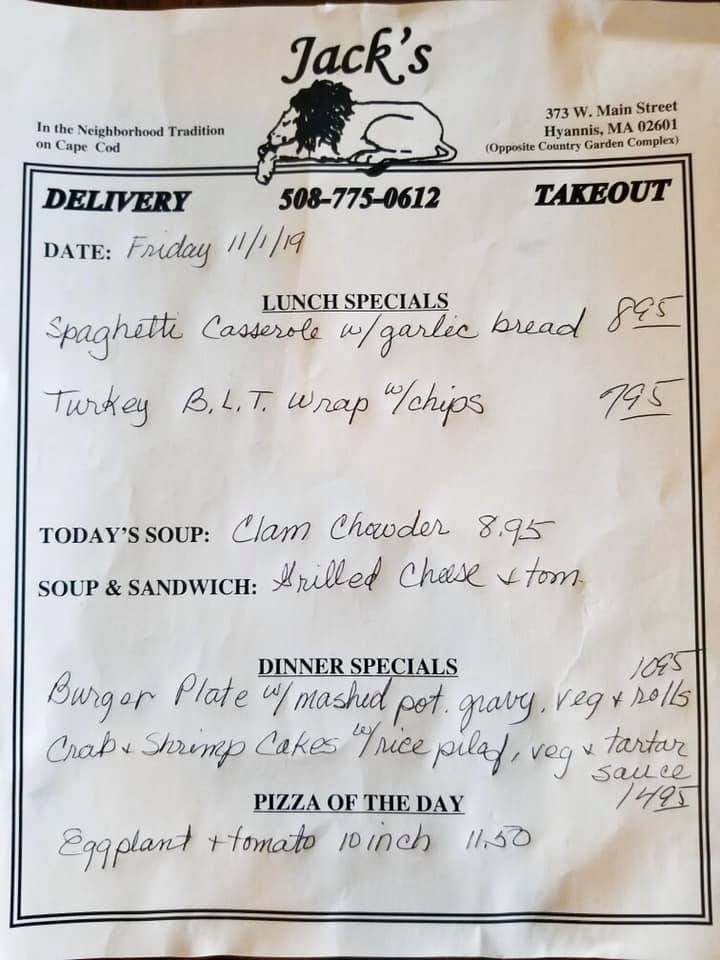 Jack's
In the Neighborhood Tradition
on Cape Cod
373 W. Main Street
Hyannis, MA 02601
(Opposite Country Garden Complex)
DELIVERY 508-775-0612 TAKEOUT
DATE: Friday 11/1/19
LUNCH SPECIALS
Spaghetti Casserole w/garlic bread 895
Turkey B.L.T. Wrap w/chips 795
TODAY'S SOUP: Clam Chowder 8.95
SOUP & SANDWICH: Grilled Cheese + tom.
DINNER SPECIALS
1095
Burger Plate w/mashed pot. gravy, veg + rolls
Crab + Shrimp Cakes w/rice pilaf, veg + tartar
sauce
1495
PIZZA OF THE DAY
Eggplant + tomato 10 inch 11.50